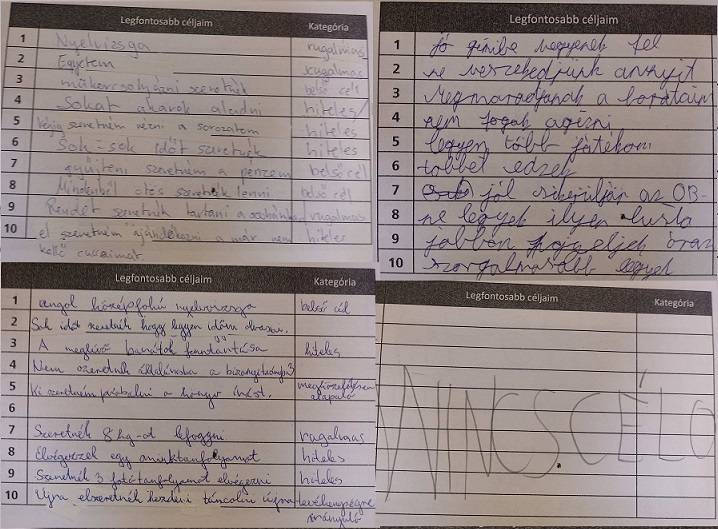 Legfontosabb céljaim Kategória
1 Nyelvizsga rugalmas
2 Egyetem rugalmas
3 műkorcsolyázni szeretnék belső cél
4 Sokat akarok aludni hiteles
5 végig szeretném nézni a sorozatom hiteles
6 Sok-sok időt szeretnék hiteles
7 gyűjteni szeretném a pénzem belső cél
8 Mindenből ötös szeretnék lenni belső cél
9 Rendet szeretnék tartani a szobámban rugalmas
10 el szeretném ajándékozni a már nem hiteles
kellő cuccaimat.
Legfontosabb céljaim
1 jó gimibe vegyenek fel
2 ne veszekedjünk annyit
3 Megmaradjanak a barátaim
4 nem fogok cigizni
5 legyen több játékom
6 többet edzek
7 jól sikerüljön az OB-
8 ne legyek ilyen lusta
9 jobban figyeljek órán
10 szorgalmasabb legyek
Legfontosabb céljaim Kategória
1 angol középfokú nyelvvizsga belső cél
2 Sok időt szeretnék hogy legyen időm olvasni.
3 A meglévő barátok fenntartása hiteles
4 Nem szeretnék általánosba a bizonyítványba 3
5 Ki szeretném próbálni a könyv írást.
alapuló
6
7 Szeretnék 8 kg-ot lefogyni rugalmas
8 Elvégezzek egy sminktanfolyamot hiteles
9 Szeretnék 3 fotótanfolyamot elvégezni hiteles
10 Újra elszeretnék kezdeni táncolni újra tevékenységre
irányuló
Legfontosabb céljaim Kategória
NINCS CÉLO